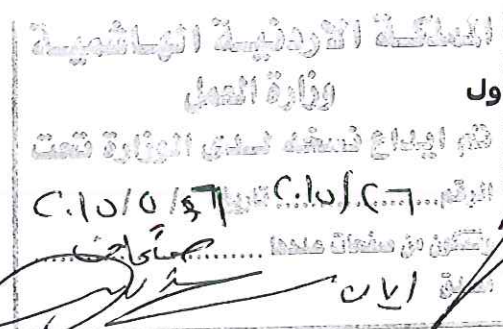 المملكة الاردنية الهاشمية
وزارة العمل
ول
تم ايداع نسخة لدى الوزارة تحت
الرقم ٢٠١٥/٢٦ تاريخ ٢٠١٥/٥/
وتتكون من صفحات عددها